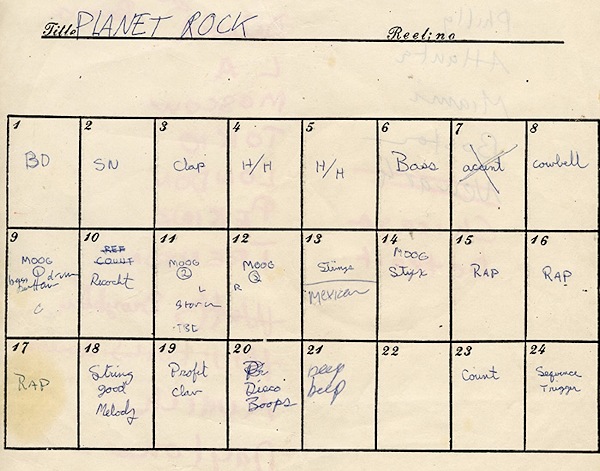 Title PLANET ROCK Reel no
1 2 3 4 5 6 7 8
BD SN Clap H/H H/H Bass accent cowbell
9 10 11 12 13 14 15 16
MOOG
REF
COUNT
Ricochet
MOOG
2
L
Storm
MOOG
R
Strings
Mexican
MOOG
Styx
RAP
RAP
17 18 19 20 21 22 23 24
RAP
String
good
Melody
Profit
Clav
Disco
Boops
beep
beep
Count
Sequence
Trigger